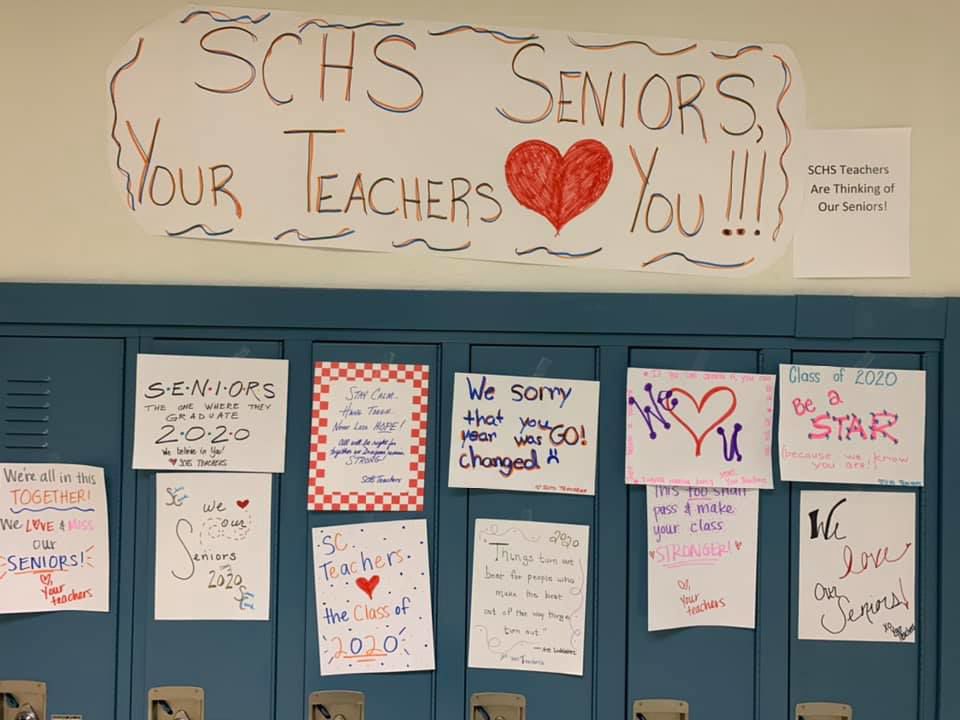 SCHS SENIORS,
YOUR TEACHERS YOU!!!
SCHS Teachers
Are Thinking of
Our Seniors!
We're all in this
TOGETHER!
We LOVE & MISS
our
SENIORS!
Your
teachers
S·E·N·I·O·R·S
THE ONE WHERE THEY
GRADUATE
2·0·2·0
We believe in You!
SCHS TEACHERS
SC
We
our
Seniors
2020
STAY CALM..
HAVE FAITH..
Never Lose HOPE!
All will be right for
together we
STRONG!
SCHS Teachers
SC
Teachers
the Class of
2020
We sorry
that you
year was GO!
changed
SCHS TEACHERS
2020
"Things turn out
best for people who
make the best
out of the way things
turn out."
Teachers
If you can dream it, you can
We U
Your Teachers
This too shall
pass & make
your class
STRONGER!
Your
teachers
Class of 2020
Be a
STAR
(because we know
you are!)
SCHS TEACHERS
We
love
Our
Seniors!
XO
Your
Teachers